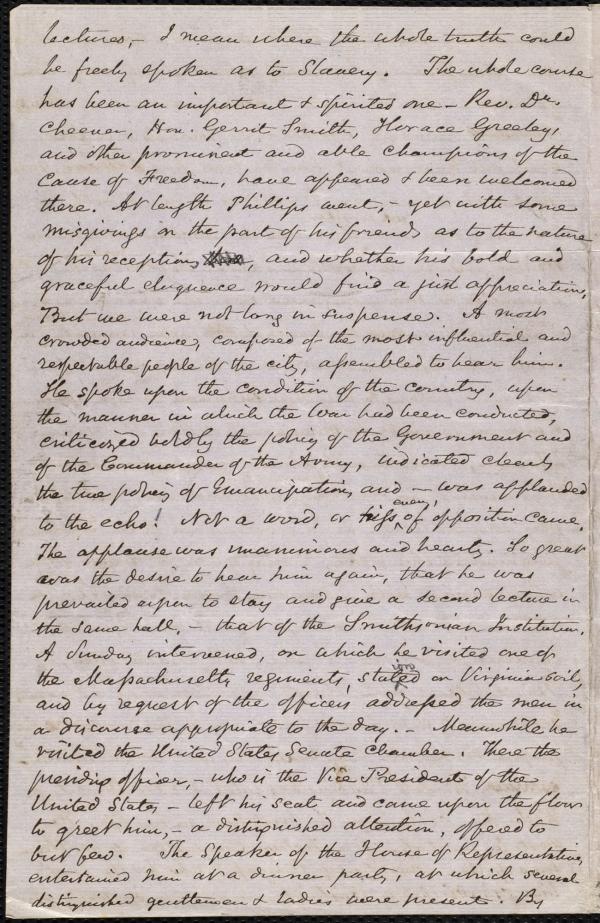 lectures, – I mean where the whole truth could
be freely spoken as to Slavery. The whole course
has been an important & spirited one – Rev. Dr.
Cheever, Hon. Gerrit Smith, Horace Greeley,
and other prominent and able champions of the
cause of Freedom, have appeared & been welcomed
there. At length Phillips went, – yet with some
misgivings on the part of his friends as to the nature
of his reception, and whether his bold and
graceful eloquence would find a just appreciation.
But we were not long in suspense. A most
crowded audience, composed of the most influential and
respectable people of the city, assembled to hear him.
He spoke upon the condition of the country, upon
the manner in which the War had been conducted,
criticized boldly the policy of the Government and
of the Commander of the Army, indicated clearly
the true policy of Emancipation, and – was applauded
to the echo! Not a word, or hiss even, of opposition came.
The applause was unanimous and hearty. So great
was the desire to hear him again, that he was
prevailed upon to stay and give a second lecture in
the same hall, – that of the Smithsonian Institution.
A Sunday intervened, on which he visited one of
the Massachusetts regiments, stated on Virginia soil,
and by request of the officers addressed the men in
a discourse appropriate to the day. – Meanwhile he
visited the United States Senate Chamber. There the
presiding officer, – who is the Vice President of the
United States – left his seat and came upon the floor
to greet him, – a distinguished attention, offered to
but few. The Speaker of the House of Representatives
entertained him at a dinner party, at which several
distinguished gentlemen & ladies were present. By